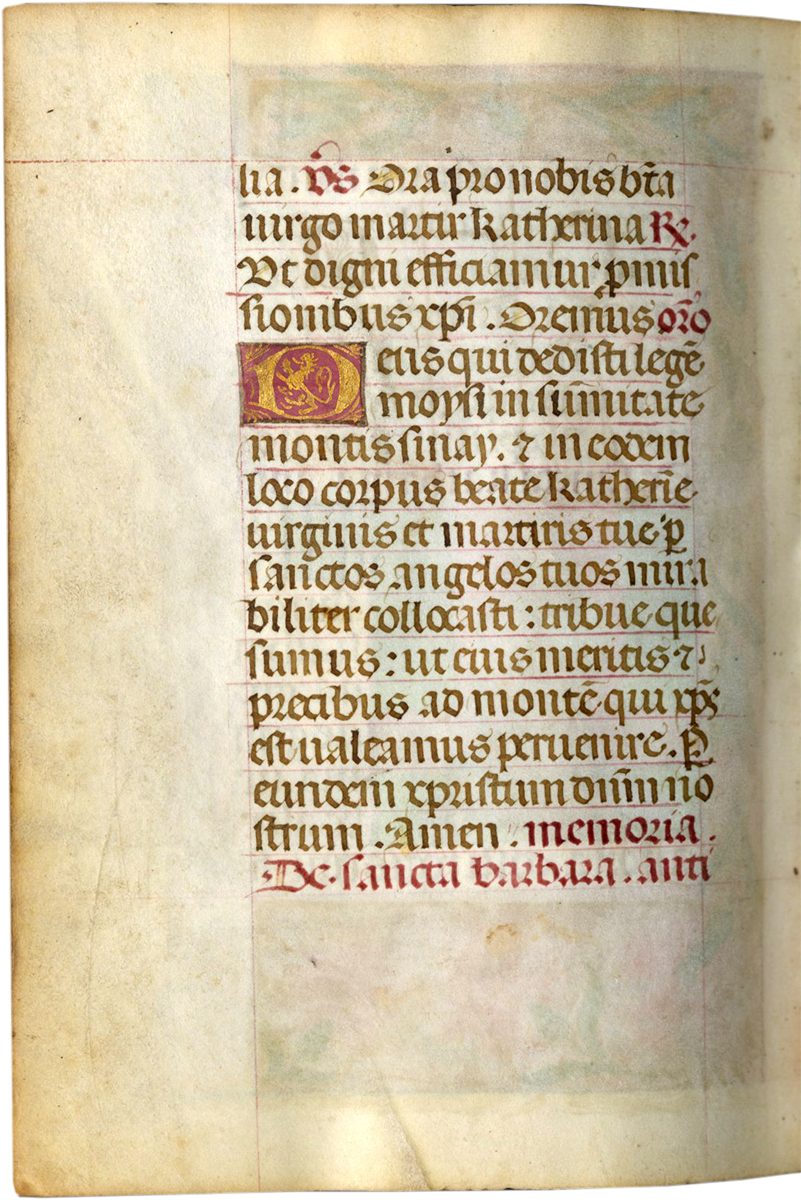 lia . v̄s Ora pro nobis bt̄a
uirgo martir katherina R̷.
Vt digni efficiamur p̱mis
sionibus xp̄i . Oremus or̄o
Deus qui dedisti legē
moysi in sum̄itate
montis sinay . ⁊ in eodem
loco corpus beate katherīe
uirginis et martiris tue ꝑ
sanctos angelos tuos mira
biliter collocasti : tribue que
sumus : ut eius meritis ⁊
precibus ad montē qui xp̄s
est ualeamus peruenire . Ꝑ
eundem xpristum dn̄m no
strum . Amen . memoria .
De sancta barbara . anti